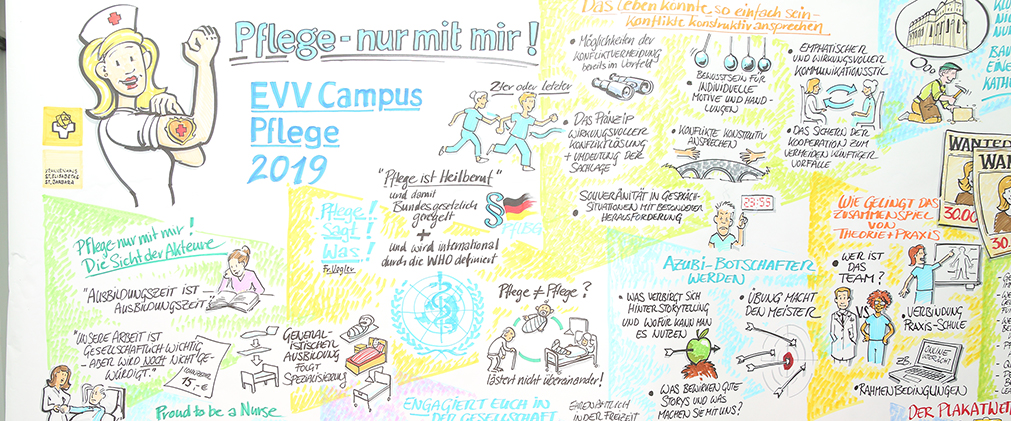 Pflege - nur mit mir!
EVV Campus
Pflege
2019
KRANKENHAUS
ST. ELISABETH &
ST. BARBARA
2ter oder letzter
"Pflege ist Heilberuf"
und damit
Bundesgesetzlich
geregelt
+
und wird international
durch die WHO definiert
§
PflBG
Pflege!
Sagt!
Was!
Fr. Vogler
Pflege-nur mit mir!
Die Sicht der Akteure
"AUSBILDUNGSZEIT IST -
AUSBILDUNGSZEIT"
"UNSERE ARBEIT IST
GESELLSCHAFTLICH WICHTIG
- ABER WIRD NOCH NICHT GE-
WÜRDIGT."
15,-€
Proud to be a Nurse
GENERAL-
ISTISCHEN
AUSBILDUNG
FOLGT
SPEZIALISIERUNG
Pflege ≠ Pflege?
lästert nicht übereinander!
ENGAGIERT EUCH IN
DER GESELLSCHAFT
EHRENAMTLICH
IN DER FREIZEIT
Das Leben könnte so einfach sein-
Konflikte konstruktiv ansprechen
• MÖGLICHKEITEN DER
KONFLIKTVERMEIDUNG
bereits im Vorfeld
• BEWUSSTSEIN FÜR
INDIVIDUELLE
MOTIVE UND HAND-
LUNGEN
• EMPHATISCHER
UND WIRKUNGSVOLLER
KOMMUNIKATIONSSTIL
• DAS PRINZIP
WIRKUNGSVOLLER
KONFLIKTLÖSUNG
+ UMDEUTUNG DER
SACHLAGE
• KONFLIKTE KONSTRUKTIV
ANSPRECHEN
• DAS SICHERN DER
KOOPERATION ZUM
VERMEIDEN KÜNFTIGER
VORFÄLLE
• SOUVERÄNITÄT IN GESPRÄCHS-
SITUATIONEN MIT BESONDERER
HERAUSFORDERUNG
23:55
AZUBI-BOTSCHAFTER
WERDEN
• WAS VERBIRGT SICH
HINTER STORYTELLING
UND WOFÜR KANN MAN
ES NUTZEN
• ÜBUNG MACHT
DEN MEISTER
• WAS BEWIRKEN GUTE
STORYS UND WAS
MACHEN SIE MIT UNS?
WIE GELINGT DAS
ZUSAMMENSPIEL
VON
THEORIE + PRAXIS
• WER IST
DAS
TEAM?
VS
• VERBINDUNG
PRAXIS-SCHULE
ZB.
ONLINE
BERICHT
• RAHMENBEDINGUNGEN
DER PLAKATWETT
WANTED
WANTED
30.000
30.00
KL
NU
BAU
EINE
KATH